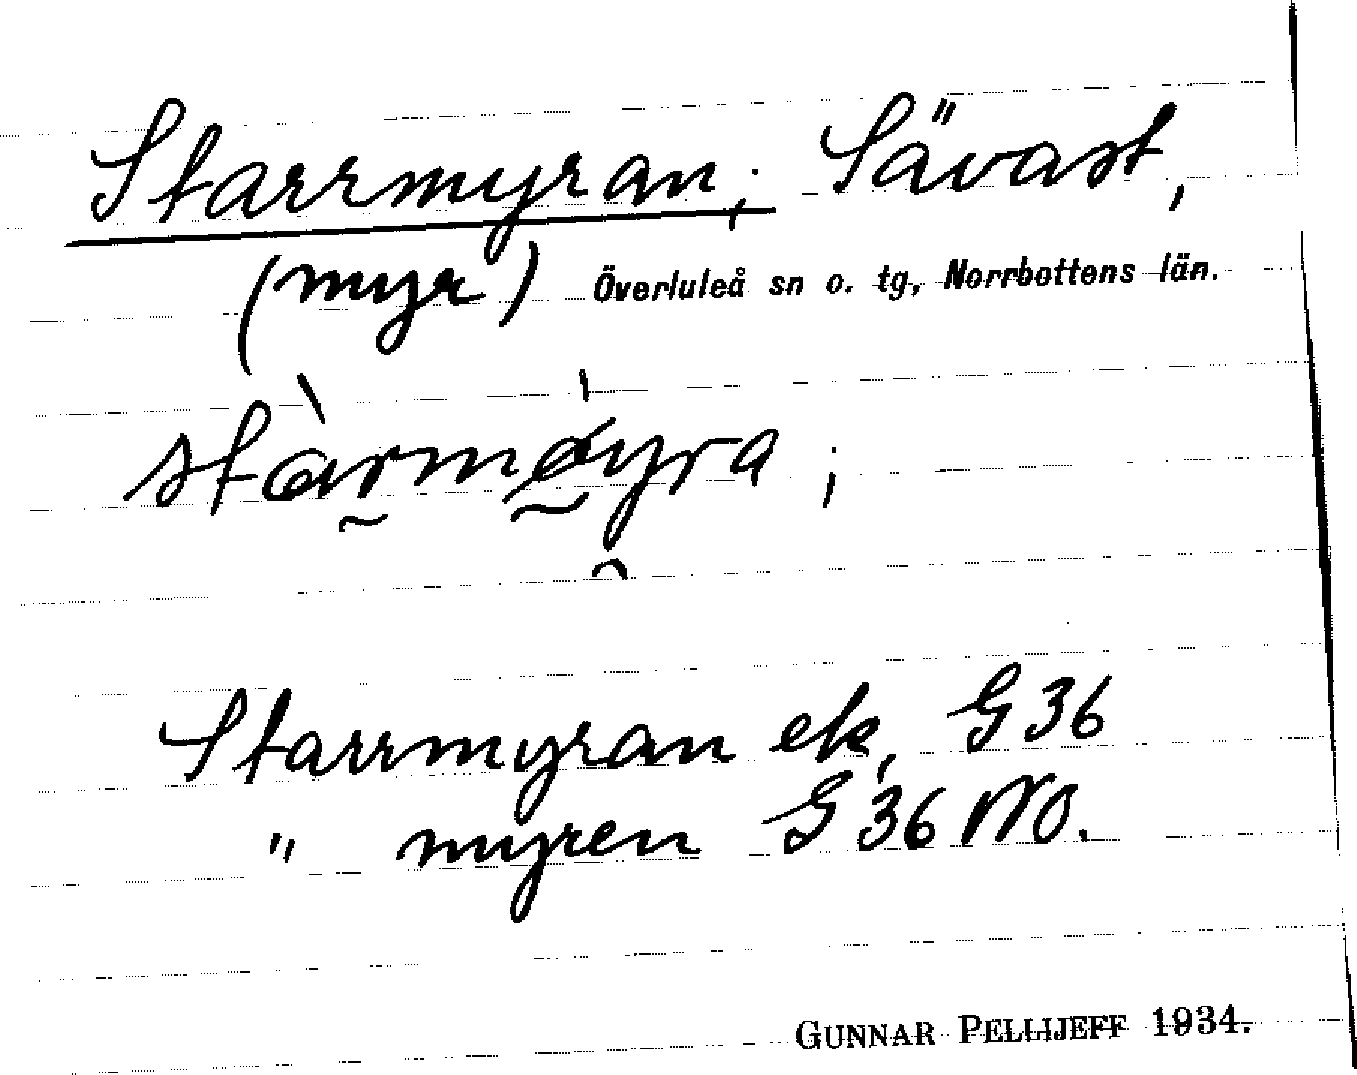 Starrmyran; Sävast,
(myr) Överluleå sn o. tg, Norrbottens län.
stàrmøyra;
Starrmyran ek, G 36
" myren G 36 NO.
GUNNAR PELLIJEFF 1934.